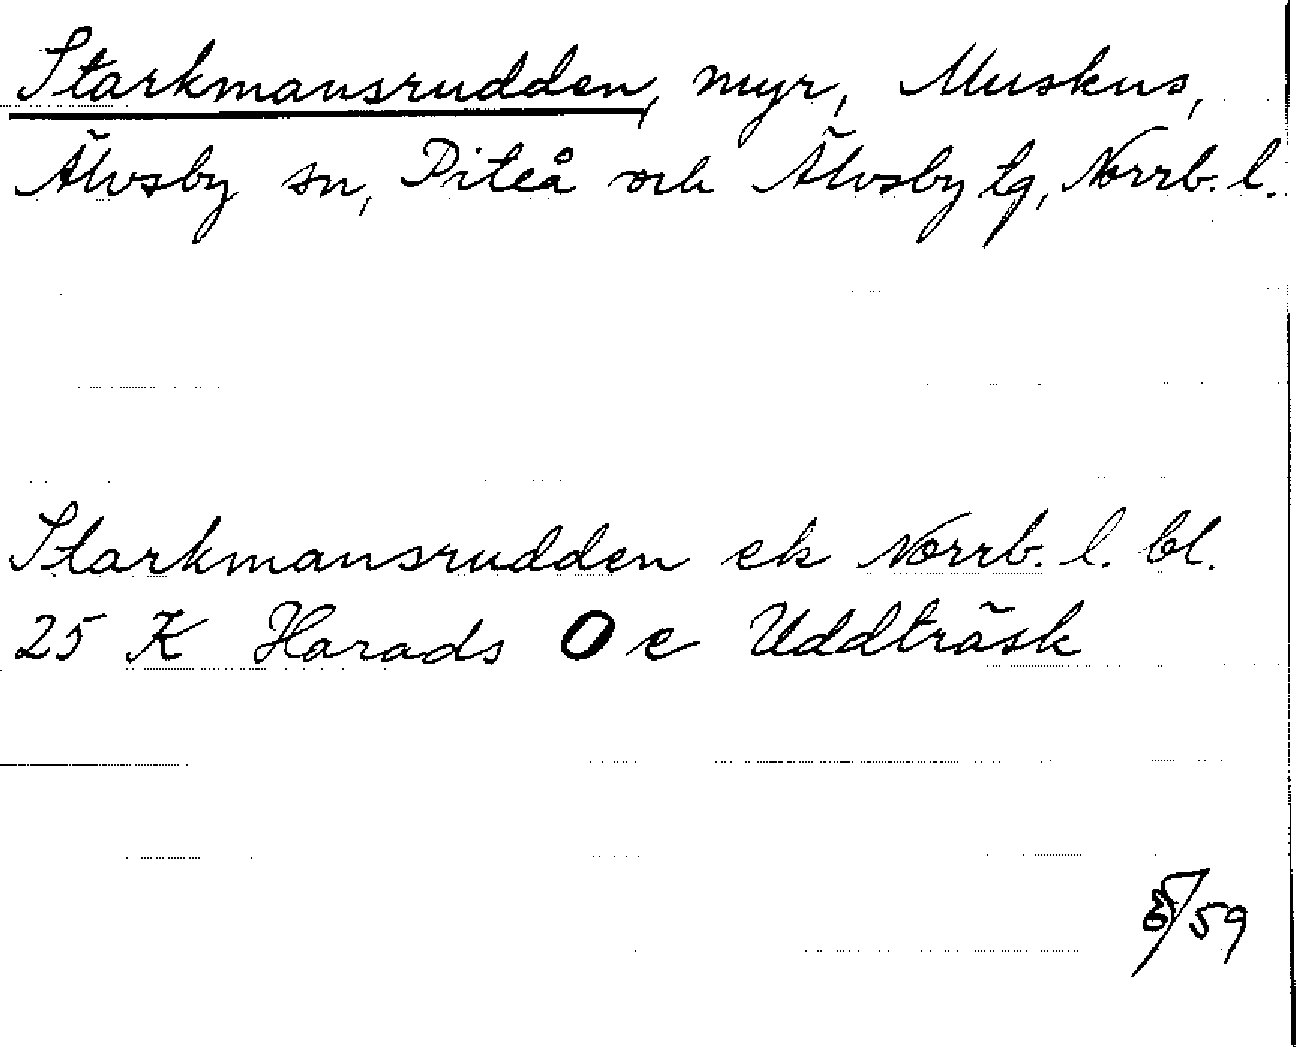 Starkmansrudden, myr, Muskus,
Älvsby sn, Piteå och Älvsby tg, Norrb. l.
Starkmansrudden ek Norrb. l. bl.
25 K Harads O c Uddträsk
/59